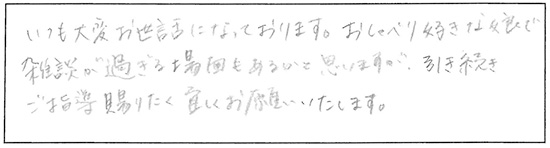 いつも大変お世話になっております。おしゃべり好きな娘で
雑談が過ぎる場面もあるかと思いますが、引き続き
ご指導賜りたく宜しくお願いいたします。